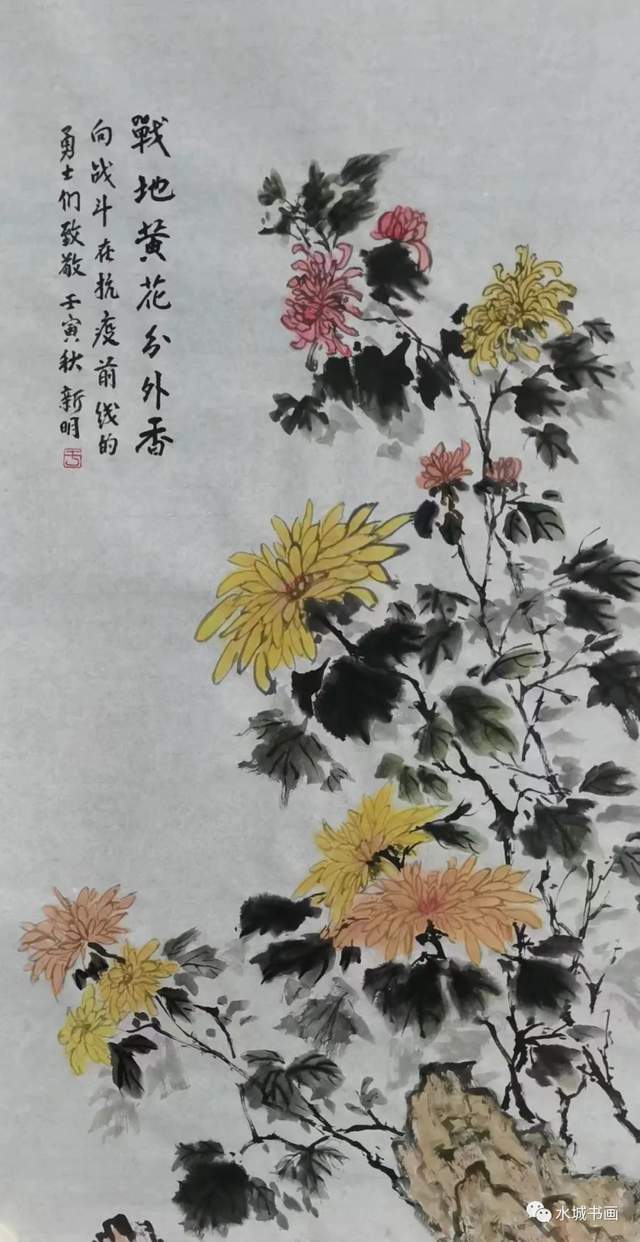 戰地黄花分外香
向战斗在抗疫前线的
勇士们致敬 壬寅秋 新明
水城书画